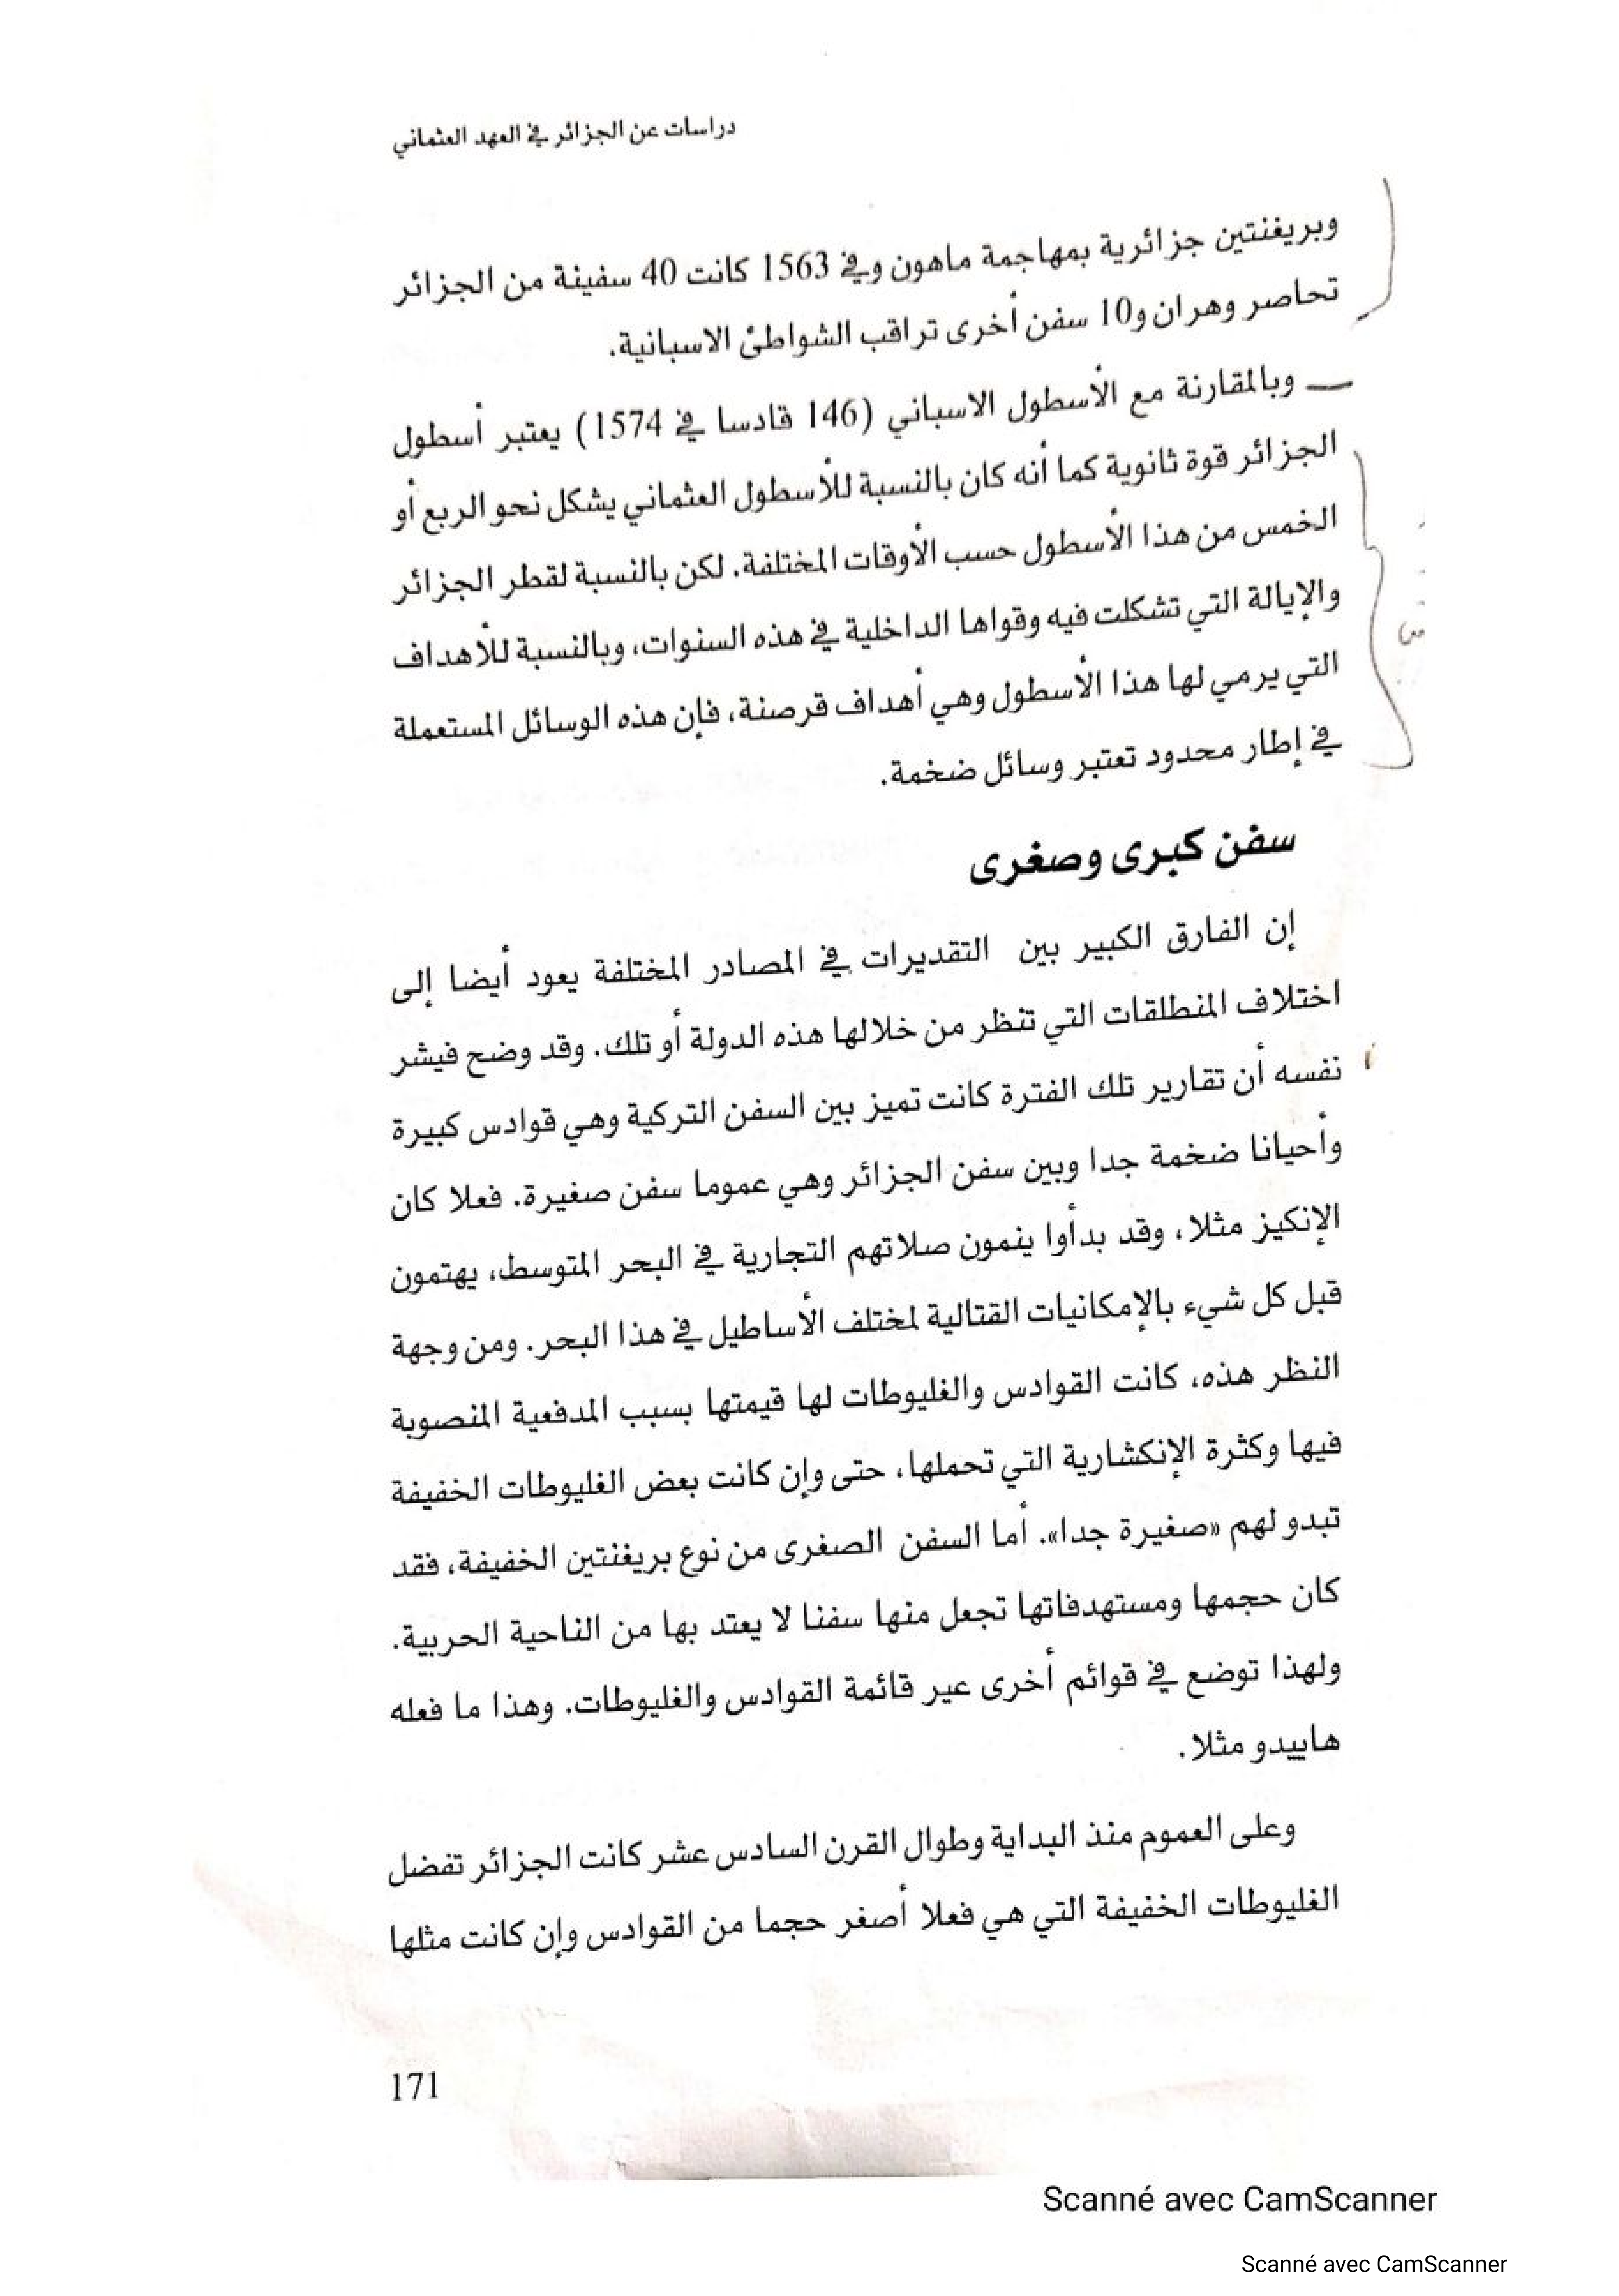 دراسات عن الجزائر في العهد العثماني
وبريغنتين جزائرية بمهاجمة ماهون وفي 1563 كانت 40 سفينة من الجزائر
تحاصر وهران و10 سفن أخرى تراقب الشواطئ الاسبانية.
وبالمقارنة مع الأسطول الاسباني (146 قادسا في 1574) يعتبر أسطول
الجزائر قوة ثانوية كما أنه كان بالنسبة للأسطول العثماني يشكل نحو الربع أو
الخمس من هذا الأسطول حسب الأوقات المختلفة. لكن بالنسبة لقطر الجزائر
والإيالة التي تشكلت فيه وقواها الداخلية في هذه السنوات، وبالنسبة للأهداف
التي يرمي لها هذا الأسطول وهي أهداف قرصنة، فإن هذه الوسائل المستعملة
في إطار محدود تعتبر وسائل ضخمة.
سفن كبرى وصغرى
إن الفارق الكبير بين التقديرات في المصادر المختلفة يعود أيضا إلى
اختلاف المنطلقات التي تنظر من خلالها هذه الدولة أو تلك. وقد وضح فيشر
نفسه أن تقارير تلك الفترة كانت تميز بين السفن التركية وهي قوادس كبيرة
وأحيانا ضخمة جدا وبين سفن الجزائر وهي عموما سفن صغيرة. فعلا كان
الإنكيز مثلا، وقد بدأوا ينمون صلاتهم التجارية في البحر المتوسط، يهتمون
قبل كل شيء بالإمكانيات القتالية لمختلف الأساطيل في هذا البحر. ومن وجهة
النظر هذه، كانت القوادس والغليوطات لها قيمتها بسبب المدفعية المنصوبة
فيها وكثرة الإنكشارية التي تحملها، حتى وإن كانت بعض الغليوطات الخفيفة
تبدو لهم «صغيرة جدا». أما السفن الصغرى من نوع بريغنتين الخفيفة، فقد
كان حجمها ومستهدفاتها تجعل منها سفنا لا يعتد بها من الناحية الحربية.
ولهذا توضع في قوائم أخرى عير قائمة القوادس والغليوطات. وهذا ما فعله
هاييدو مثلا.
وعلى العموم منذ البداية وطوال القرن السادس عشر كانت الجزائر تفضل
الغليوطات الخفيفة التي هي فعلا أصغر حجما من القوادس وإن كانت مثلها
171
Scanné avec CamScanner
Scanné avec CamScanner